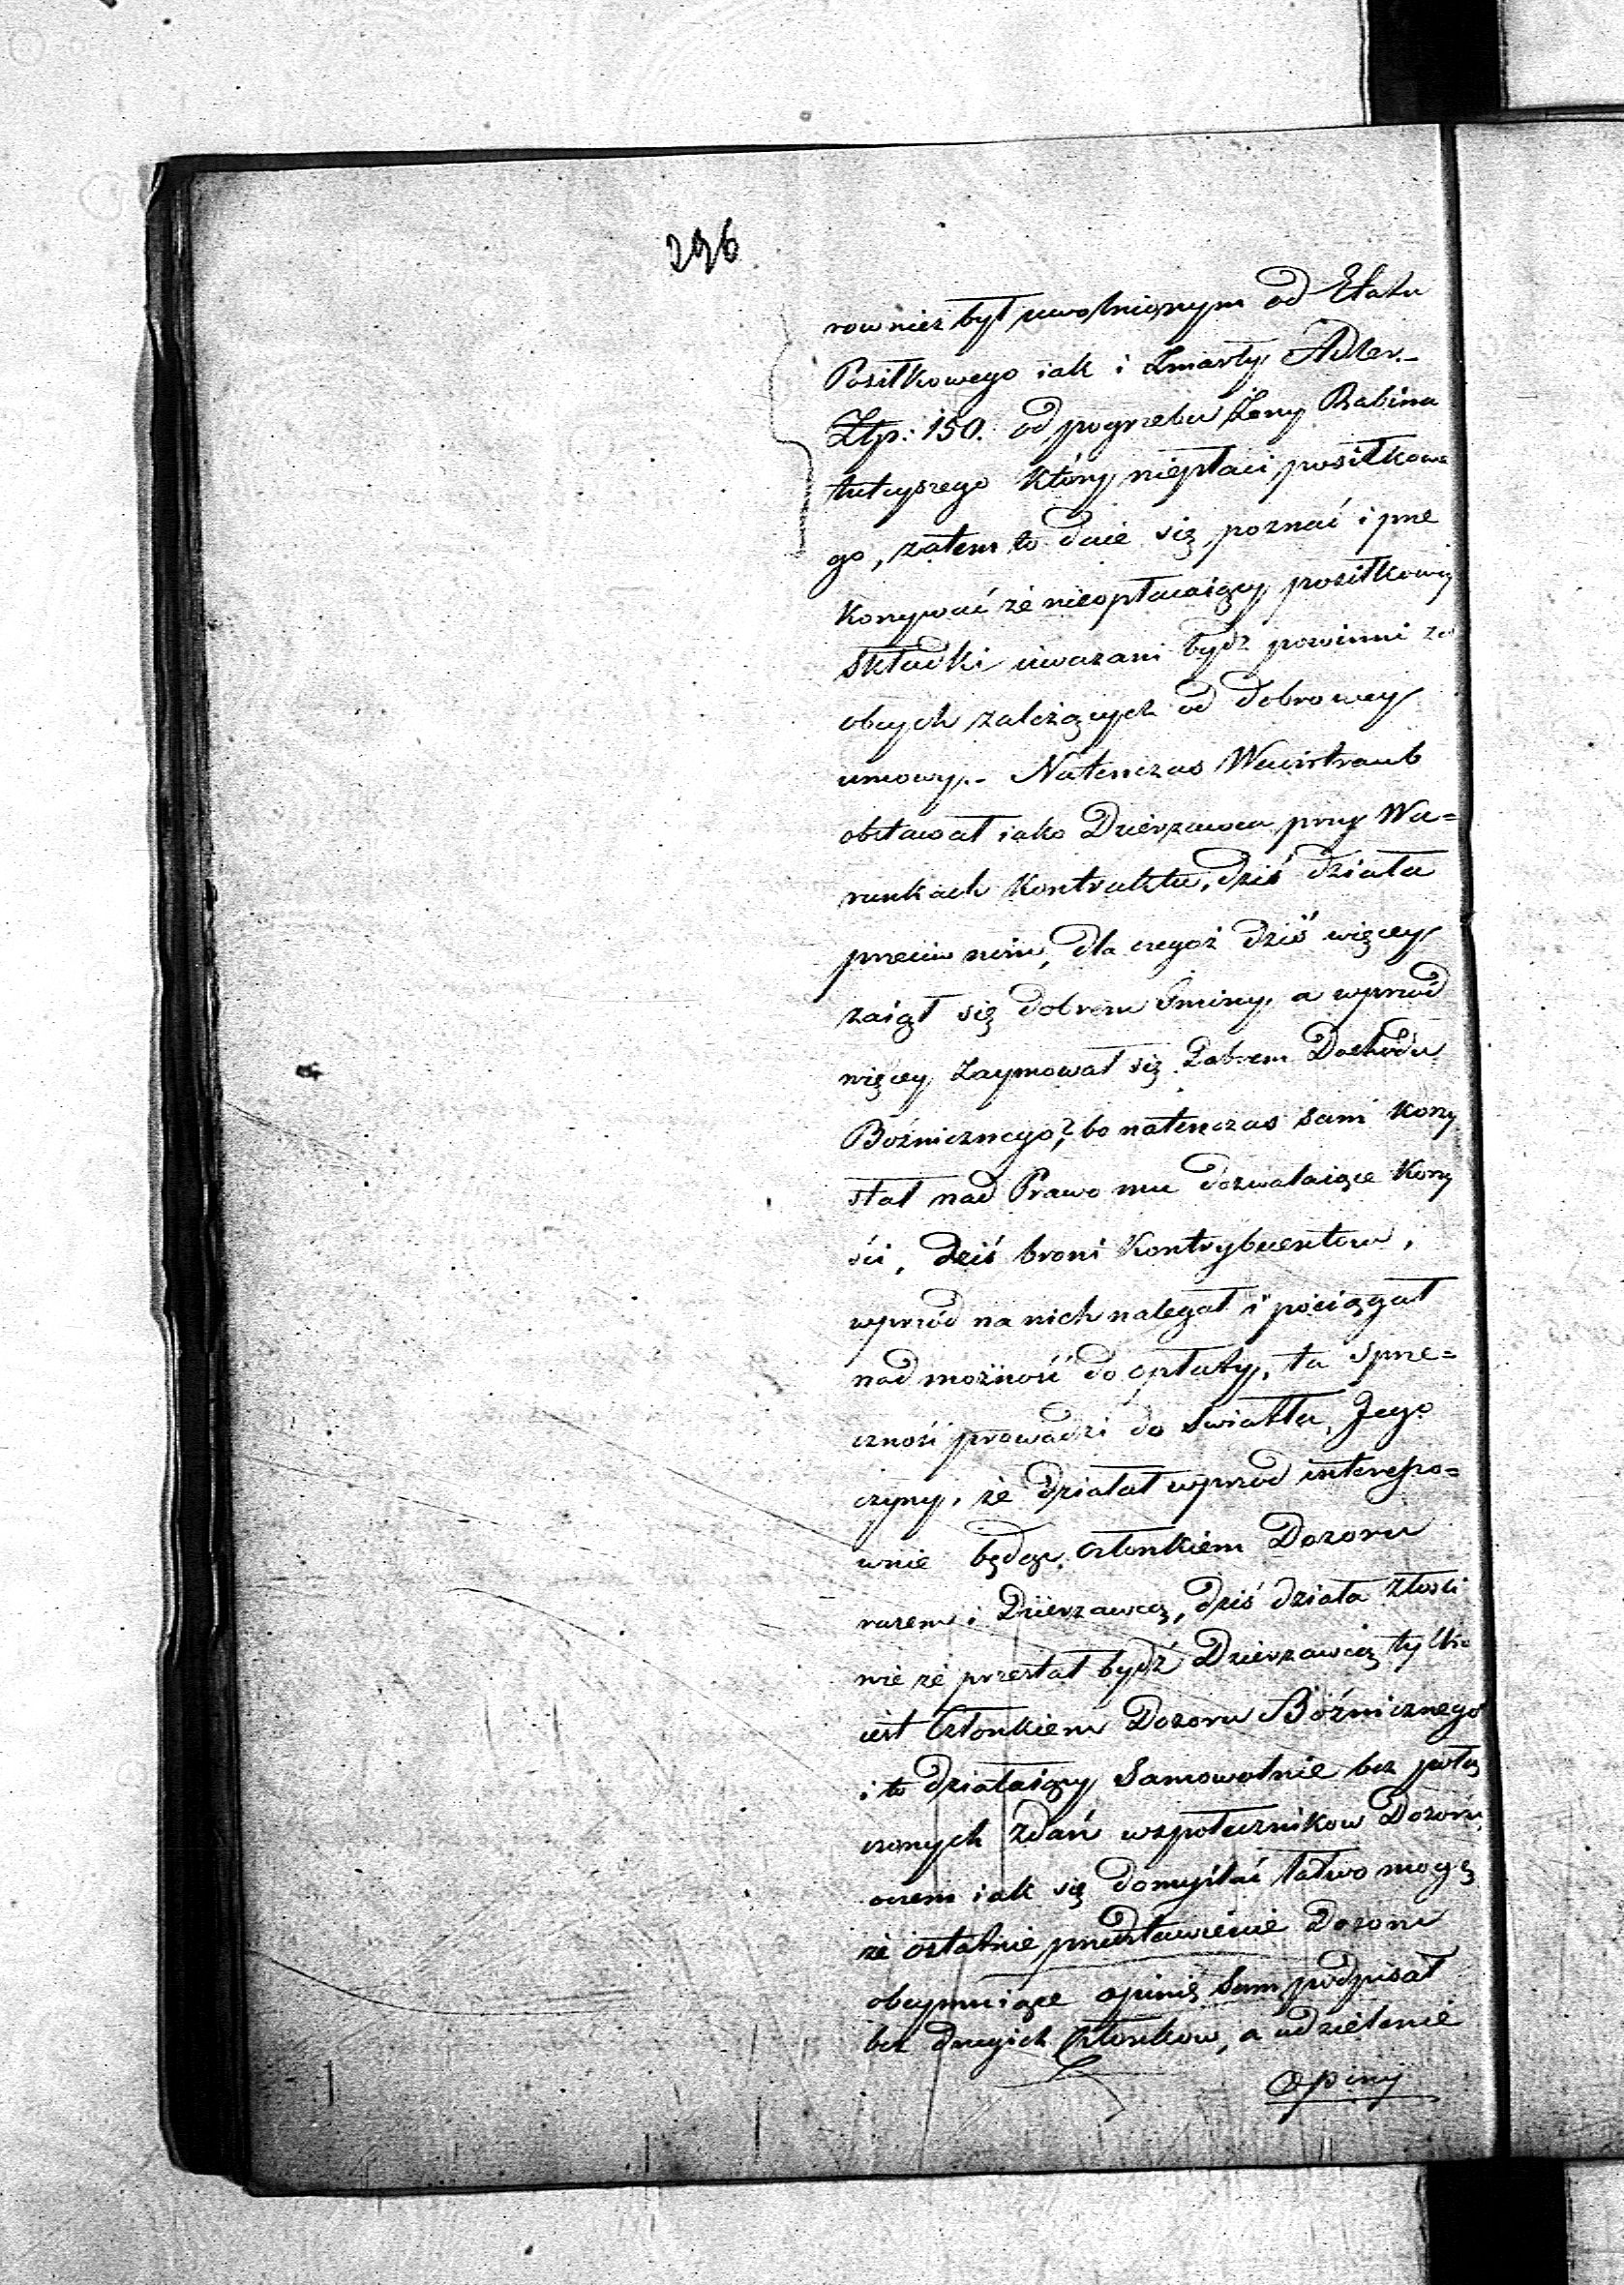 296
rownież był uwolnionym od Etatu
Posiłkowego iak i Zmarły Adler.–
Złp: 150. od pogrzebu Żony Rabina
tuteyszego który niepłaci posiłkowe
go, zatem to daie się poznać i prze
konywać że nieopłacaiący posiłkowey
składki uwazani bydz powinni za
obcych zależących od dobrowey
umowy.– Natenczas Weintraub
obstawał iako Dzierzawca przy Wa=
runkach Kontraktu, dziś działa
przeciw nim, dla czegoż dziś więcey
zaiął się dobrem Gminy, a wprzód
więcey Zaymował się Zabrem Dochodu
Bóźnicznego? bo natenczas sam korzy
stał nad Prawo mu dozwalaiące Korzy
ści, dziś broni Kontrybuentow,
wprzód na nich nalegał i pociągał
nad możność do opłaty, ta sprze=
czność prowadzi do światła Jego
czyny, że działał wprzod interesso=
wnie będąc członkiem Dozoru
razem i Dzierzawcą, dziś działa złośli
wie że przestał bydź Dzierzawcą tylko
iest Członkiem Dozoru Bóźnicznego
i to działaiący Samowolnie bez połą
czonych zdań wspołecznikow Dozoru,
oczem iak się domyślać łatwo mogę
że ostatnie przedstawienie Dozoru
obeymuiące opinię Sam podpisał
bez drugich Członkow, a udzielenie
Opiny